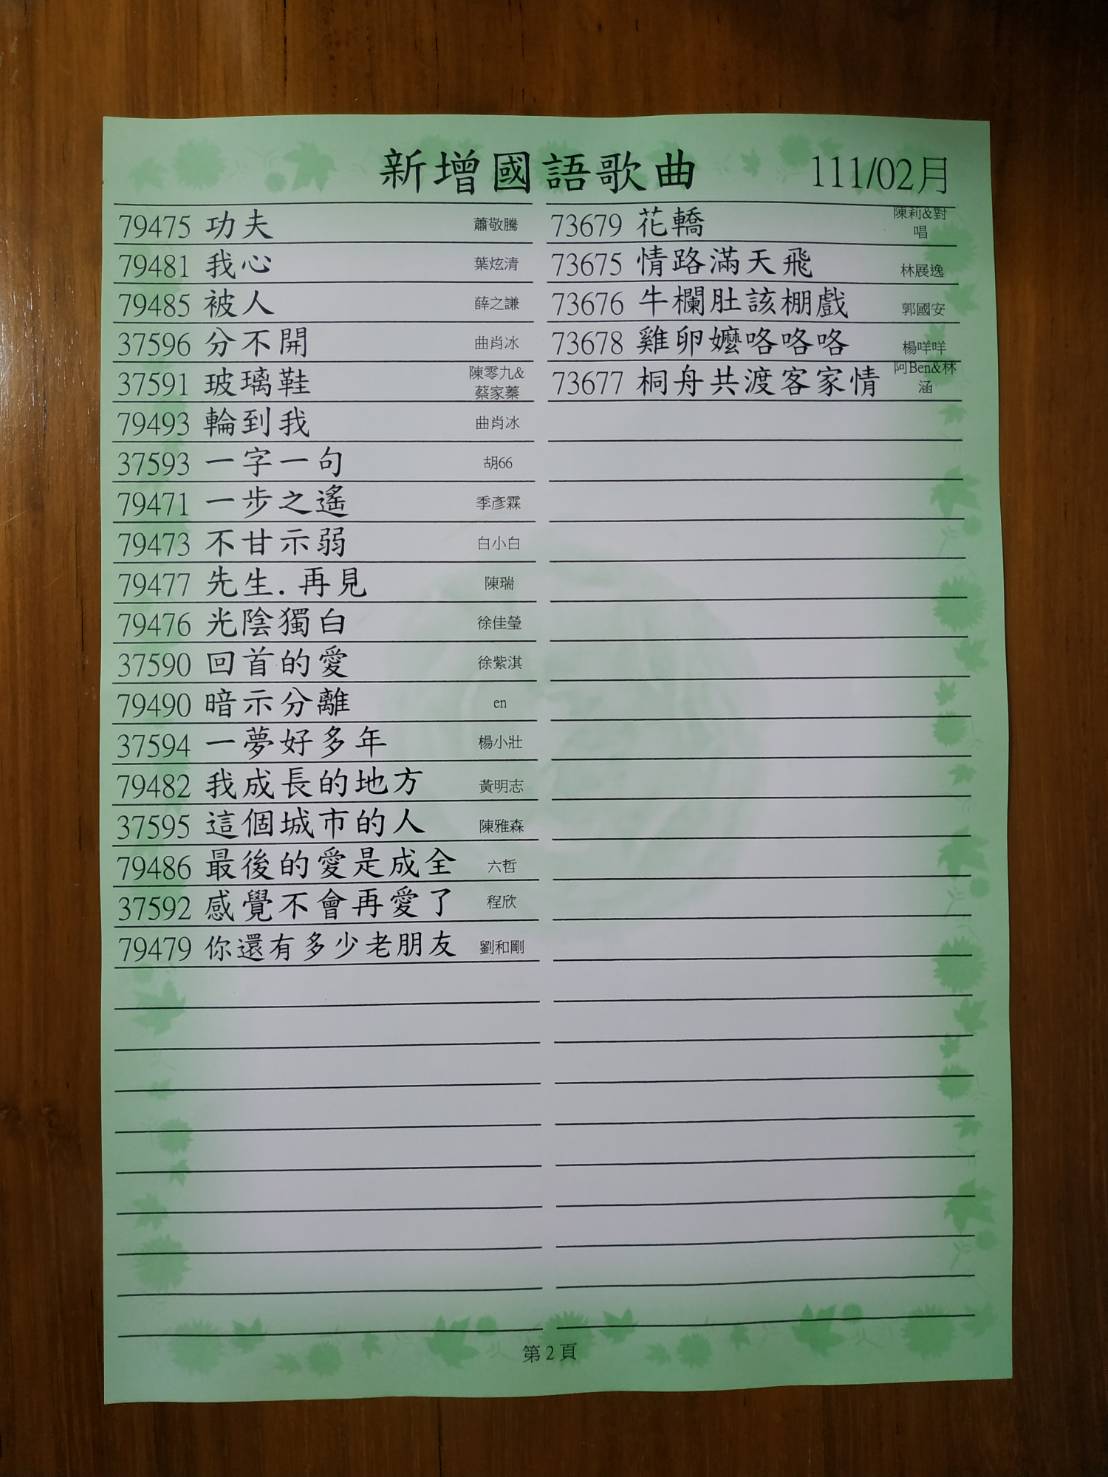 新增國語歌曲 111/02月
79475 功夫 蕭敬騰
79481 我心 葉炫清
79485 被人 薛之謙
37596 分不開 曲肖冰
37591 玻璃鞋 陳零九&蔡家蓁
79493 輪到我 曲肖冰
37593 一字一句 胡66
79471 一步之遙 季彥霖
79473 不甘示弱 白小白
79477 先生.再見 陳瑞
79476 光陰獨白 徐佳瑩
37590 回首的愛 徐紫淇
79490 暗示分離 en
37594 一夢好多年 楊小壯
79482 我成長的地方 黃明志
37595 這個城市的人 陳雅森
79486 最後的愛是成全 六哲
37592 感覺不會再愛了 程欣
79479 你還有多少老朋友 劉和剛
73679 花轎 陳莉&對唱
73675 情路滿天飛 林展逸
73676 牛欄肚該棚戲 郭國安
73678 雞卵嬤咯咯咯 楊咩咩
73677 桐舟共渡客家情 阿Ben&林涵
第2頁